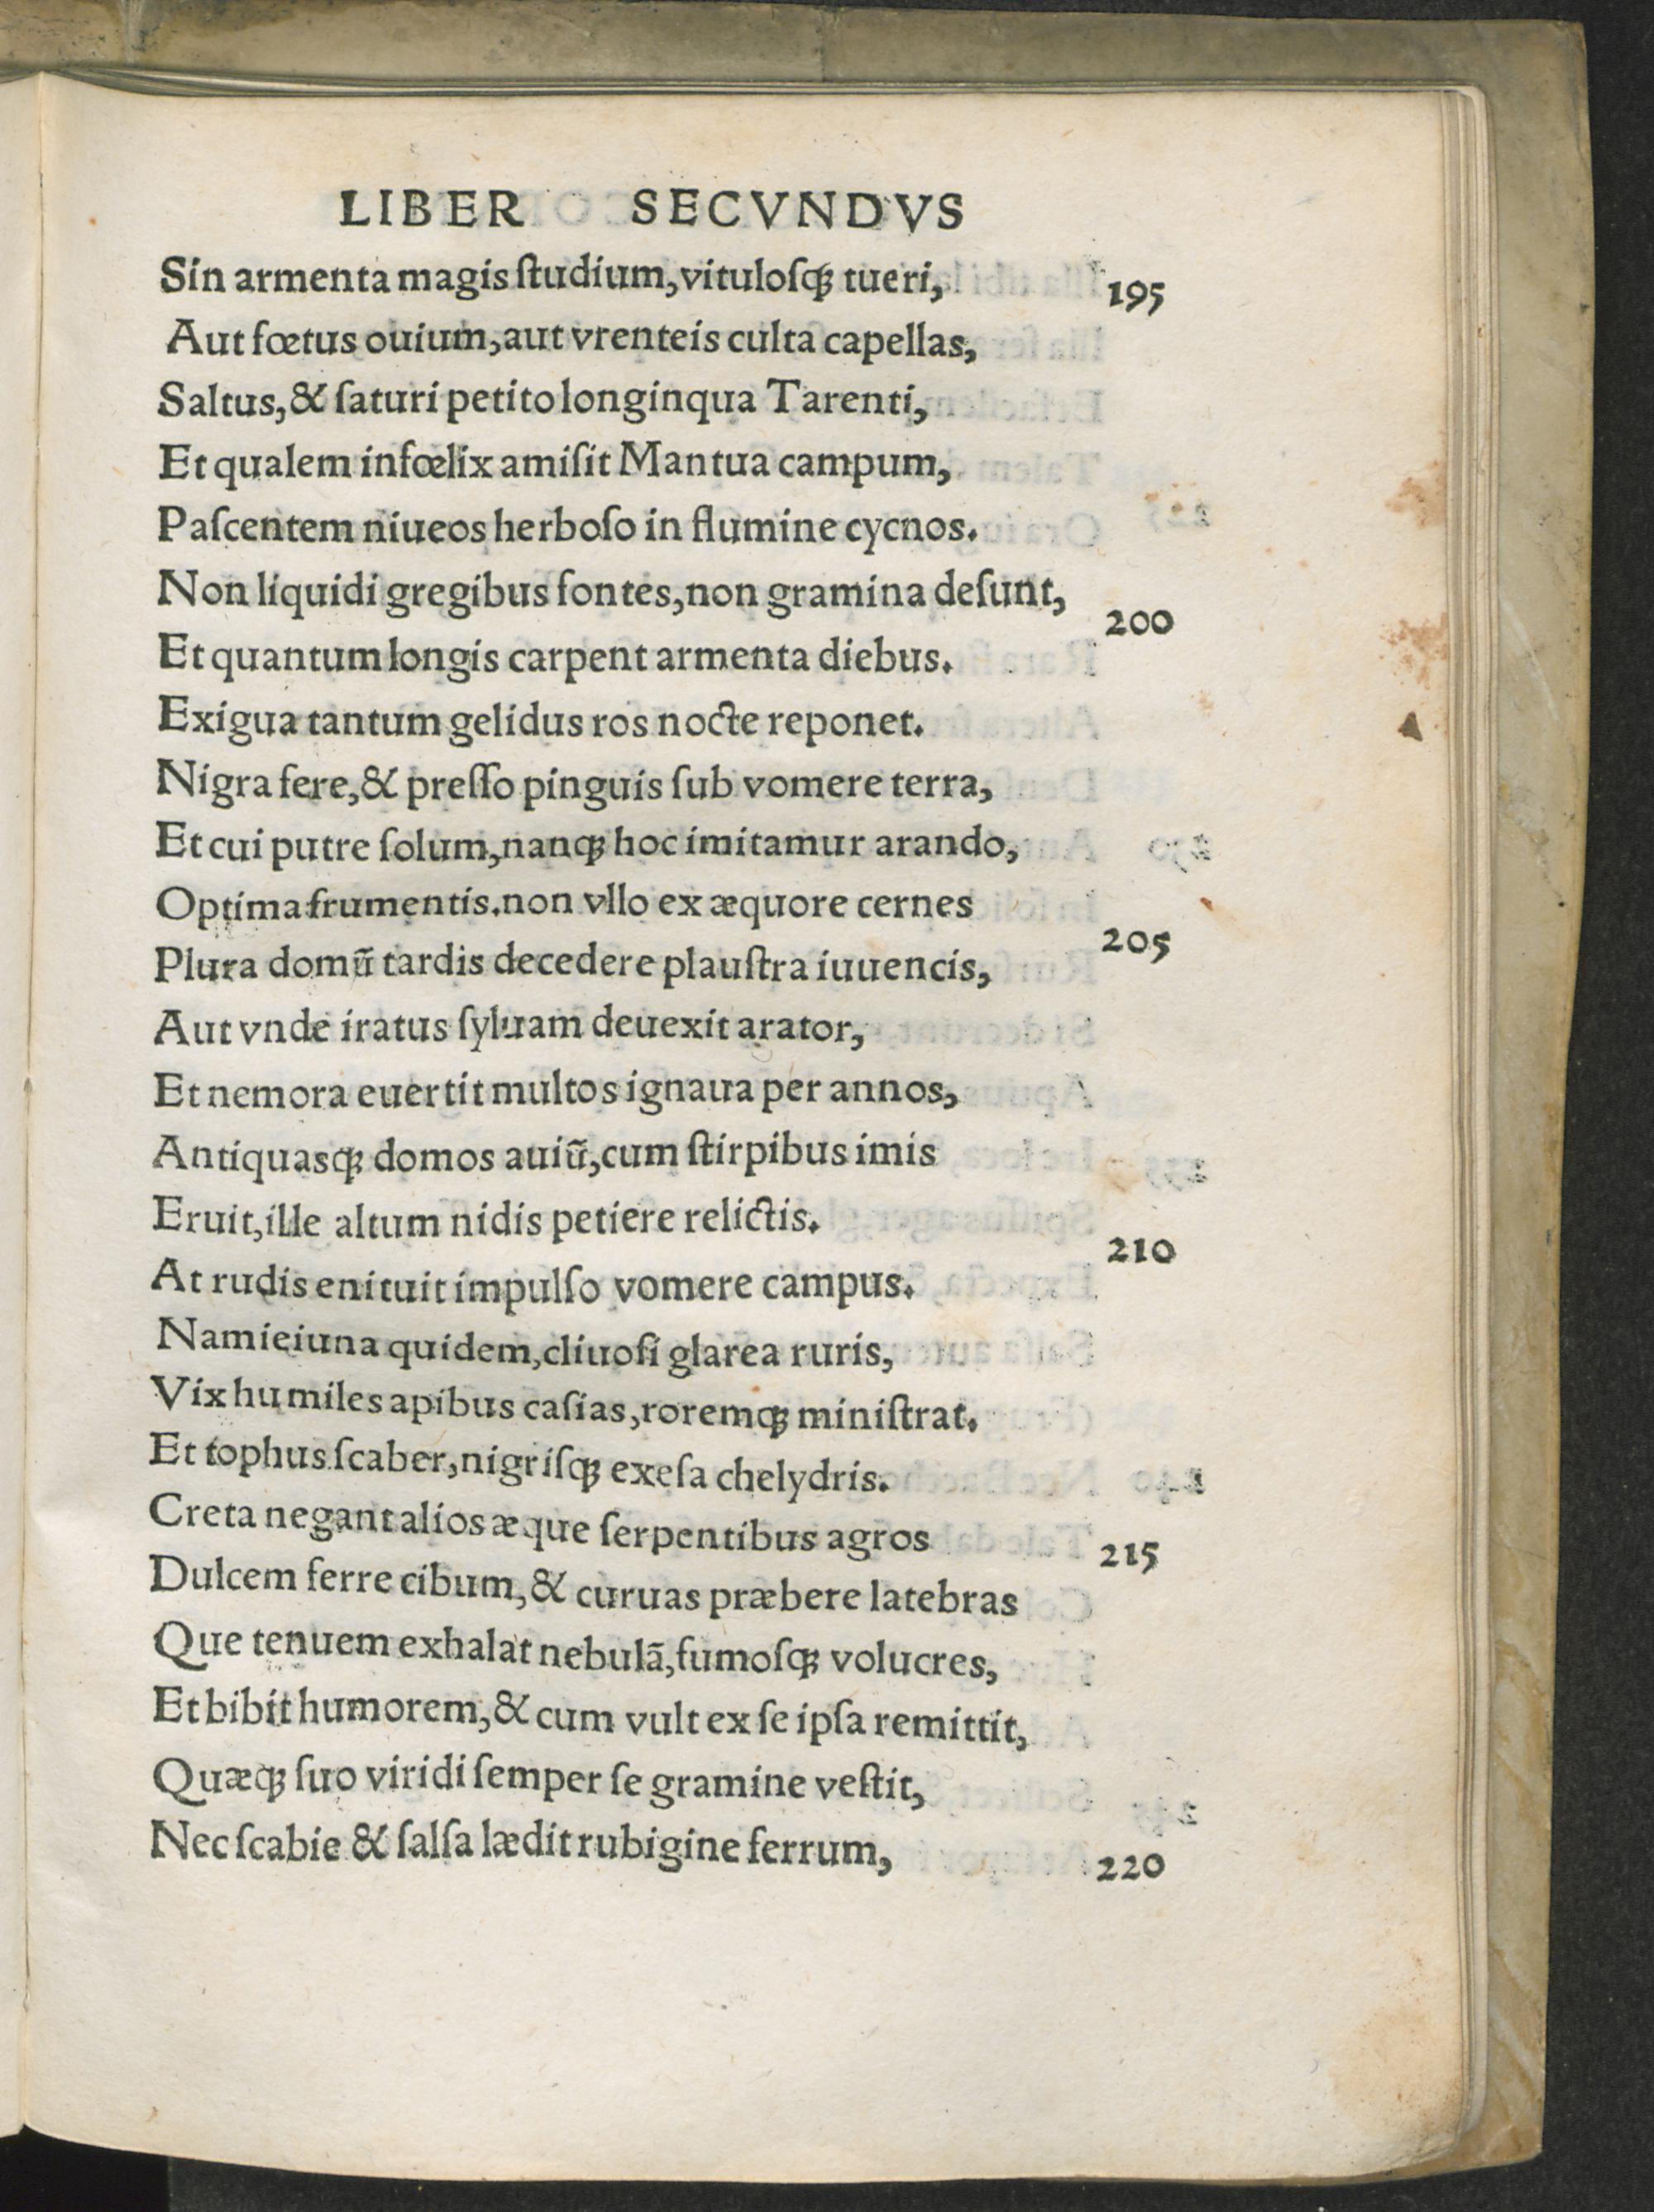 LIBER SECVNDVS
Sin armenta magis ſtudium, vituloſqꝫ tueri, 195
Aut fœtus ouium, aut vrenteis culta capellas,
Saltus, & ſaturi petito longinqua Tarenti,
Et qualem infœlix amiſit Mantua campum,
Paſcentem niueos herboſo in flumine cycnos.
Non liquidi gregibus fontes, non gramina deſunt, 200
Et quantum longis carpent armenta diebus.
Exigua tantum gelidus ros nocte reponet.
Nigra fere, & preſſo pinguis ſub vomere terra,
Et cui putre ſolum, nanqꝫ hoc imitamur arando,
Optima frumentis. non vllo ex æquore cernes 205
Plura domũ tardis decedere plauſtra iuuencis,
Aut vnde iratus ſyluam deuexit arator,
Et nemora euertit multos ignaua per annos,
Antiquasqꝫ domos auiũ, cum ſtirpibus imis
Eruit, ille altum nidis petiere relictis. 210
At rudis enituit impulſo vomere campus.
Nam ieiuna quidem, cliuoſi glarea ruris,
Vix humiles apibus caſias, roremqꝫ miniſtrat.
Et tophus ſcaber, nigriſqꝫ exeſa chelydris.
Creta negant alios æque ſerpentibus agros 215
Dulcem ferre cibum, & curuas præbere latebras
Que tenuem exhalat nebulã, fumoſqꝫ volucres,
Et bibit humorem, & cum vult ex ſe ipſa remittit,
Quæqꝫ ſuo viridi ſemper ſe gramine veſtit,
Nec ſcabie & ſalſa lædit rubigine ferrum, 220